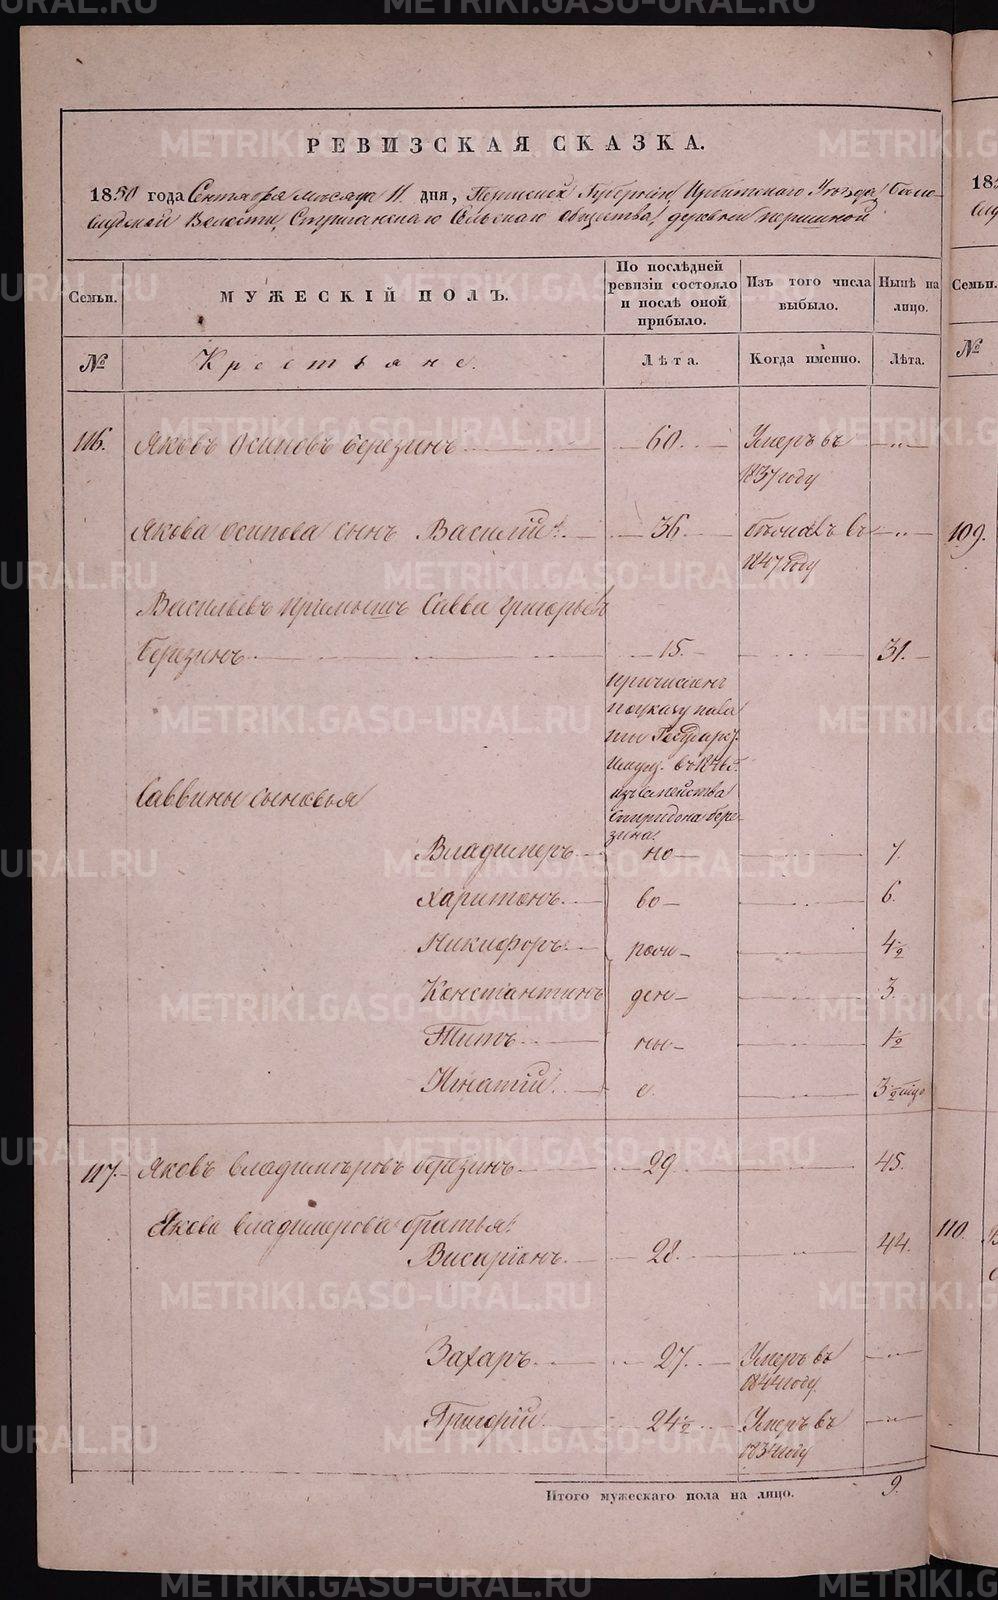 METRIKI.GASO-URAL.RU
РЕВИЗСКАЯ СКАЗКА.
1850 года Сентября месяца 11 дня, Пермской Губернии, Ирбитскаго Уезда, Бело-
слудской Волости, Стриганскаго Сельскаго общества, деревни першиной
Семьи.
МУЖЕСКІЙ ПОЛЪ.
По послѣдней ревизіи состояло и послѣ оной прибыло.
Изъ того числа выбыло.
Нынѣ на лицо.
№
Крестьяне.
Лѣта.
Когда именно.
Лѣта.
116. Яковъ Осиповъ Березинъ 60. Умеръ въ 1837 году „
Якова Осипова сынъ Василій 36. въ 1847 году „
Васильевъ приемышъ Савва Григорьевъ
Березинъ 15. 31.
причисленъ
по указу пала
ты Государ.
Имущ. въ
изъ семейства
Спиридона Бере-
зина.
Саввины сыновья
Владимеръ но 7.
Харитонъ во 6.
Никифоръ рож 4½
Константинъ ден 3.
Титъ ны 1½
Игнатій е. 3
117. Яковъ Владимеровъ Березинъ 29. 45.
Якова Владимерова братья:
Висаріонъ 28. 44.
Захаръ 27. Умеръ въ 1844 году „
Григорій 24½ Умеръ въ 1834 году „
Итого мужескаго пола на лицо. 9.
185
Семьи.
№
109.
110.